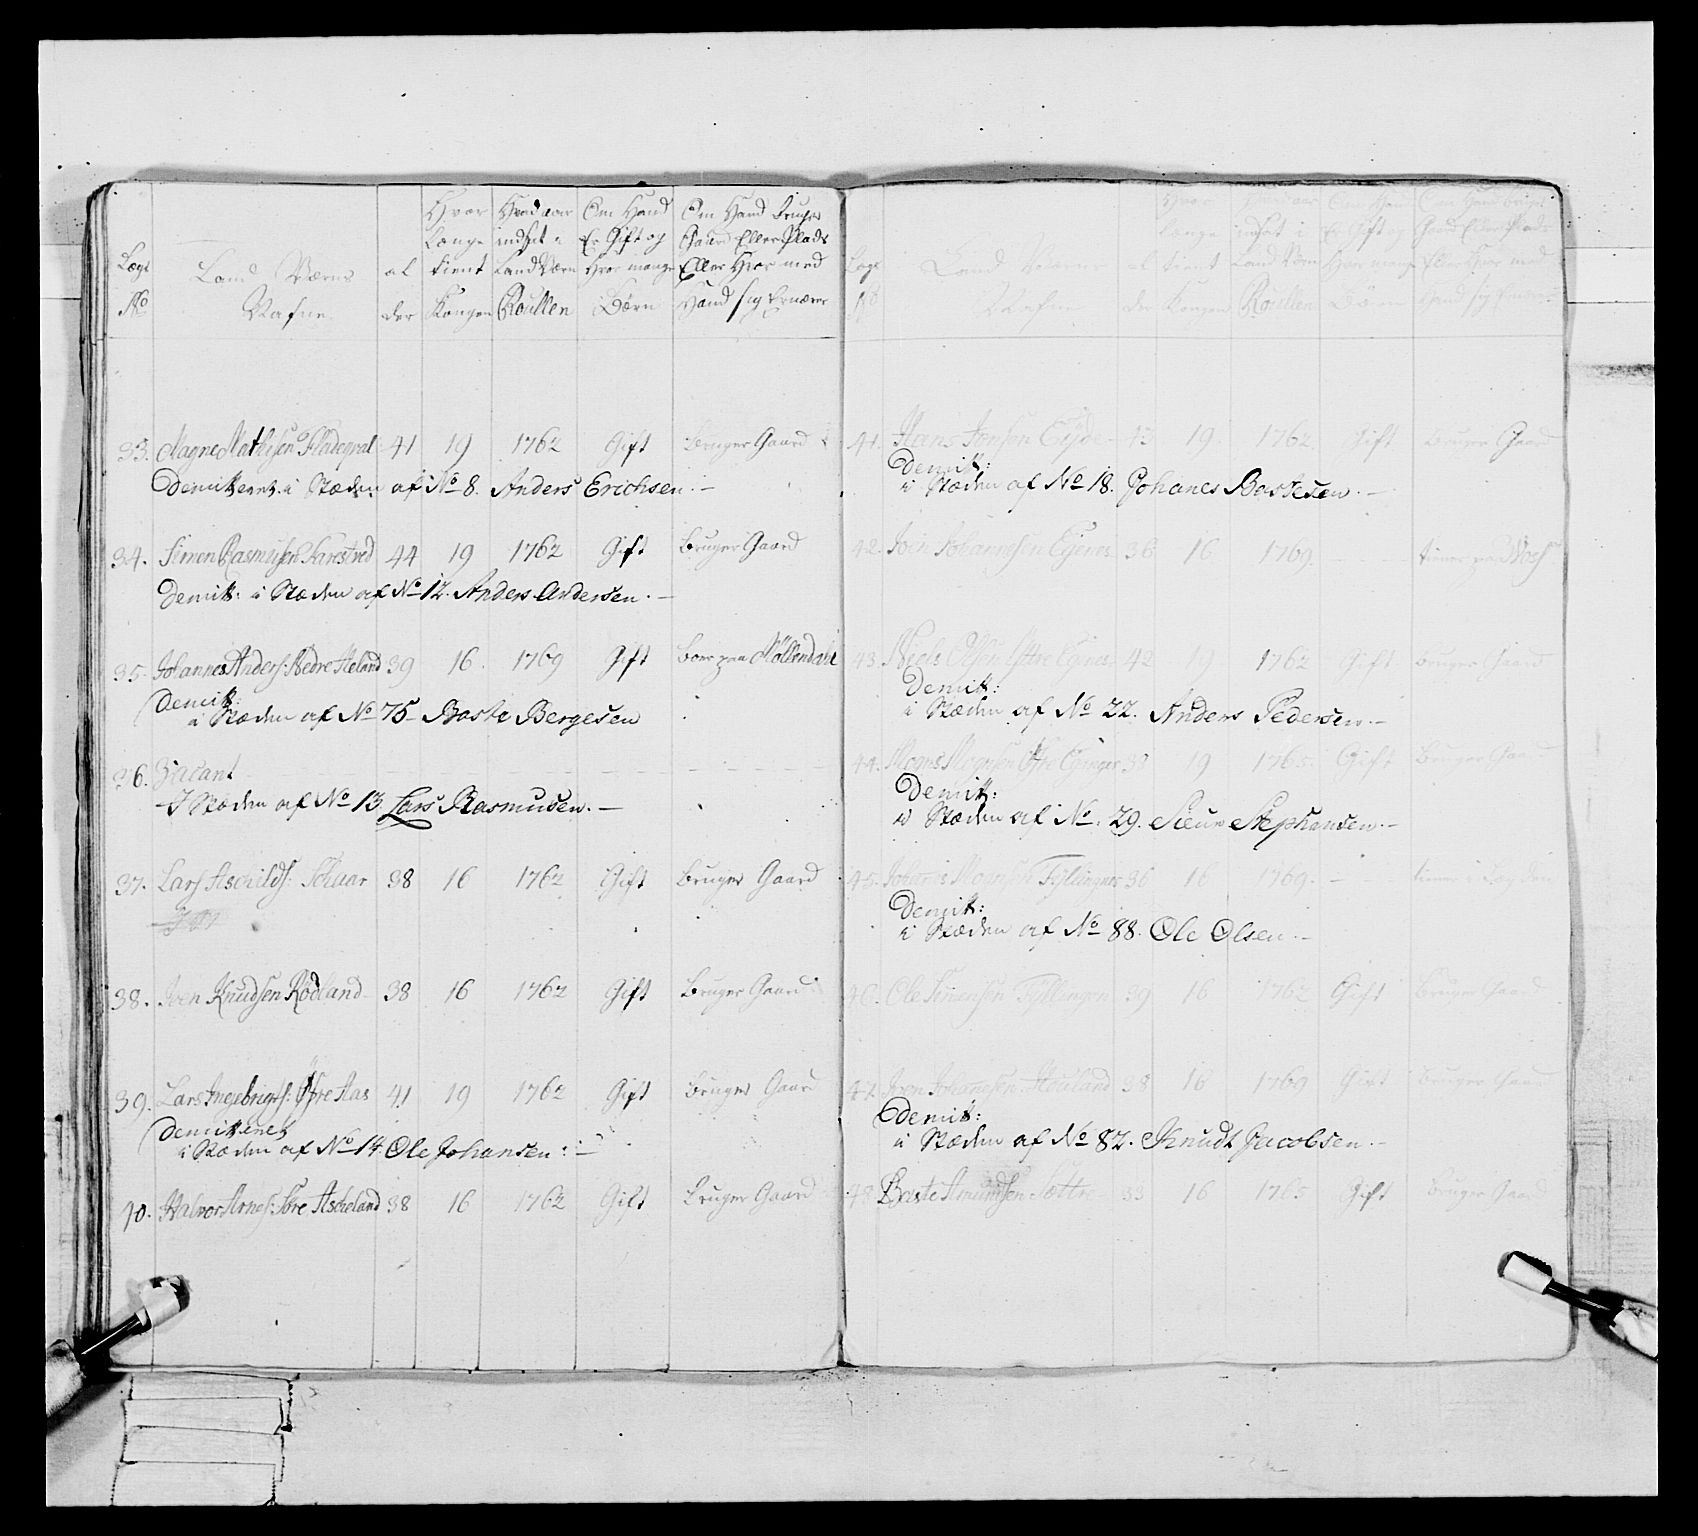 Lægs No | Land Værns Nafne | al der | Hvor Længe tient Kongen | Hvad aar indsat i Land Værn Roullen | Om Hand Er Gift og Hvor mange Børn | Om Hand bruger Gaard Eller Plads Eller Hvor med Hand sig Ernærer
33. Magne Mathisen 41 19 1762 Gift bruger Gaard
Demitteret i Stæden af No 8. Anders Erichsen. –
34. Simen Rasmusen 44 19 1762 Gift bruger Gaard
Demitt: i Stæden af No 12. Anders Andersen. –
35. Johannes Anders: Nedre Heland 39 16. 1769 Gift boer paa Möllendahl
Demitt:
i Stæden af No 75 Baste Bergesen
36. Vacant
I Stæden af No 13 Lars Rasmusen. –
37. Lars Aschilds: 38 16 1762 Gift bruger Gaard
38. Iven Knudsen Rødland 38 16 1762 Gift Bruger Gaard
39. Lars Ingebrigts: Øfre Aas 41 19 1762 Gift bruger Gaard
Demitteret
i Stæden af No 14. Ole Johansen : –
40. Halvor Arnes: Aseheland 38 16 1762 Gift bruger Gaard
Lægs No | Land Værns Nafne | al der | Hvor længe tient Kongen | Hvad aar indsat i Land Værn Roullen | Om Hand Er Gift og Hvor mange Børn | Om Hand bruger Gaard Eller Plads Eller Hvor med Hand sig Ernærer
41. Hans Jonsen Eyde 43 19 1762 Gift bruger Gaard
Demitt:
i Stæden af No 18. Johanes Bastesen. –
42. Johannesen 36 16 1769. tiener paa Woss
43. Neels Olsen Yttre 42 19 1762 Gift bruger Gaard
Demitt:
i Stæden af No 22. Anders Pedersen. –
44. Mogns Mognsen 38 19 1765 Gift Bruger Gaard
Demitt:
i Stæden af No. 29. Sieur Stephansen. –
45. Johanes Mognsen Fyllingnes 36 16 1769. tiener
Demitt:
i Stæden af No 88. Ole Olsen. –
46. Ole Simensen Fyllingen 39 16 1762 Gift Bruger Gaard
47. Iven Johannesen Hauland 38 16 1769 Gift Bruger Gaard
Demitt:
i Stæden af No 82. Knudt Jacobsen. –
48. Baste Amundsen Sættre 33 16 1765 Gift Bruger Gaard